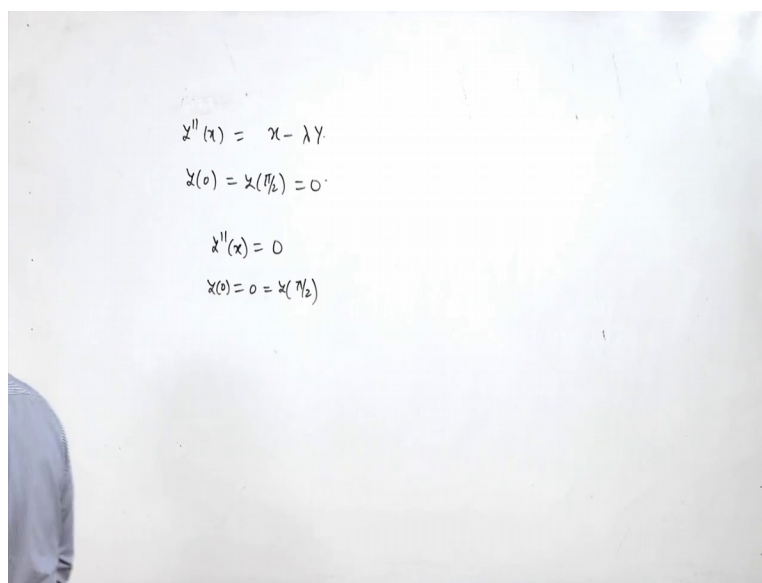 y''(x) = x - λy.
y(0) = y(π/2) = 0.
y''(x) = 0
y(0) = 0 = y(π/2)